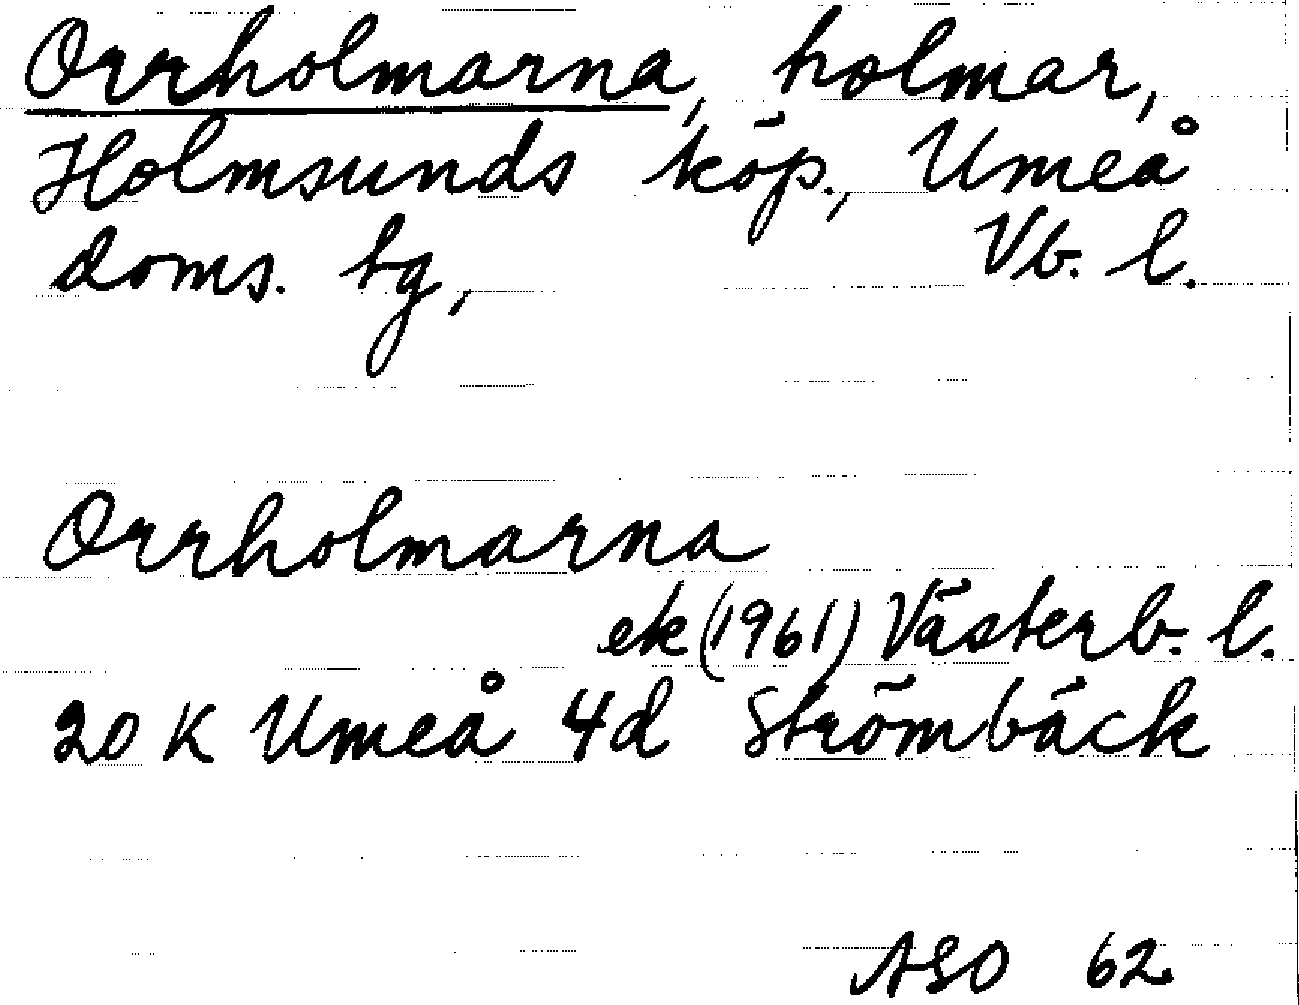 Orrholmarna, holmar,
Holmsunds köp., Umeå
doms. tg, Vb. l.
Orrholmarna
ek (1961) Västerb. l.
20 K Umeå 4d Strömbäck
ASO 62